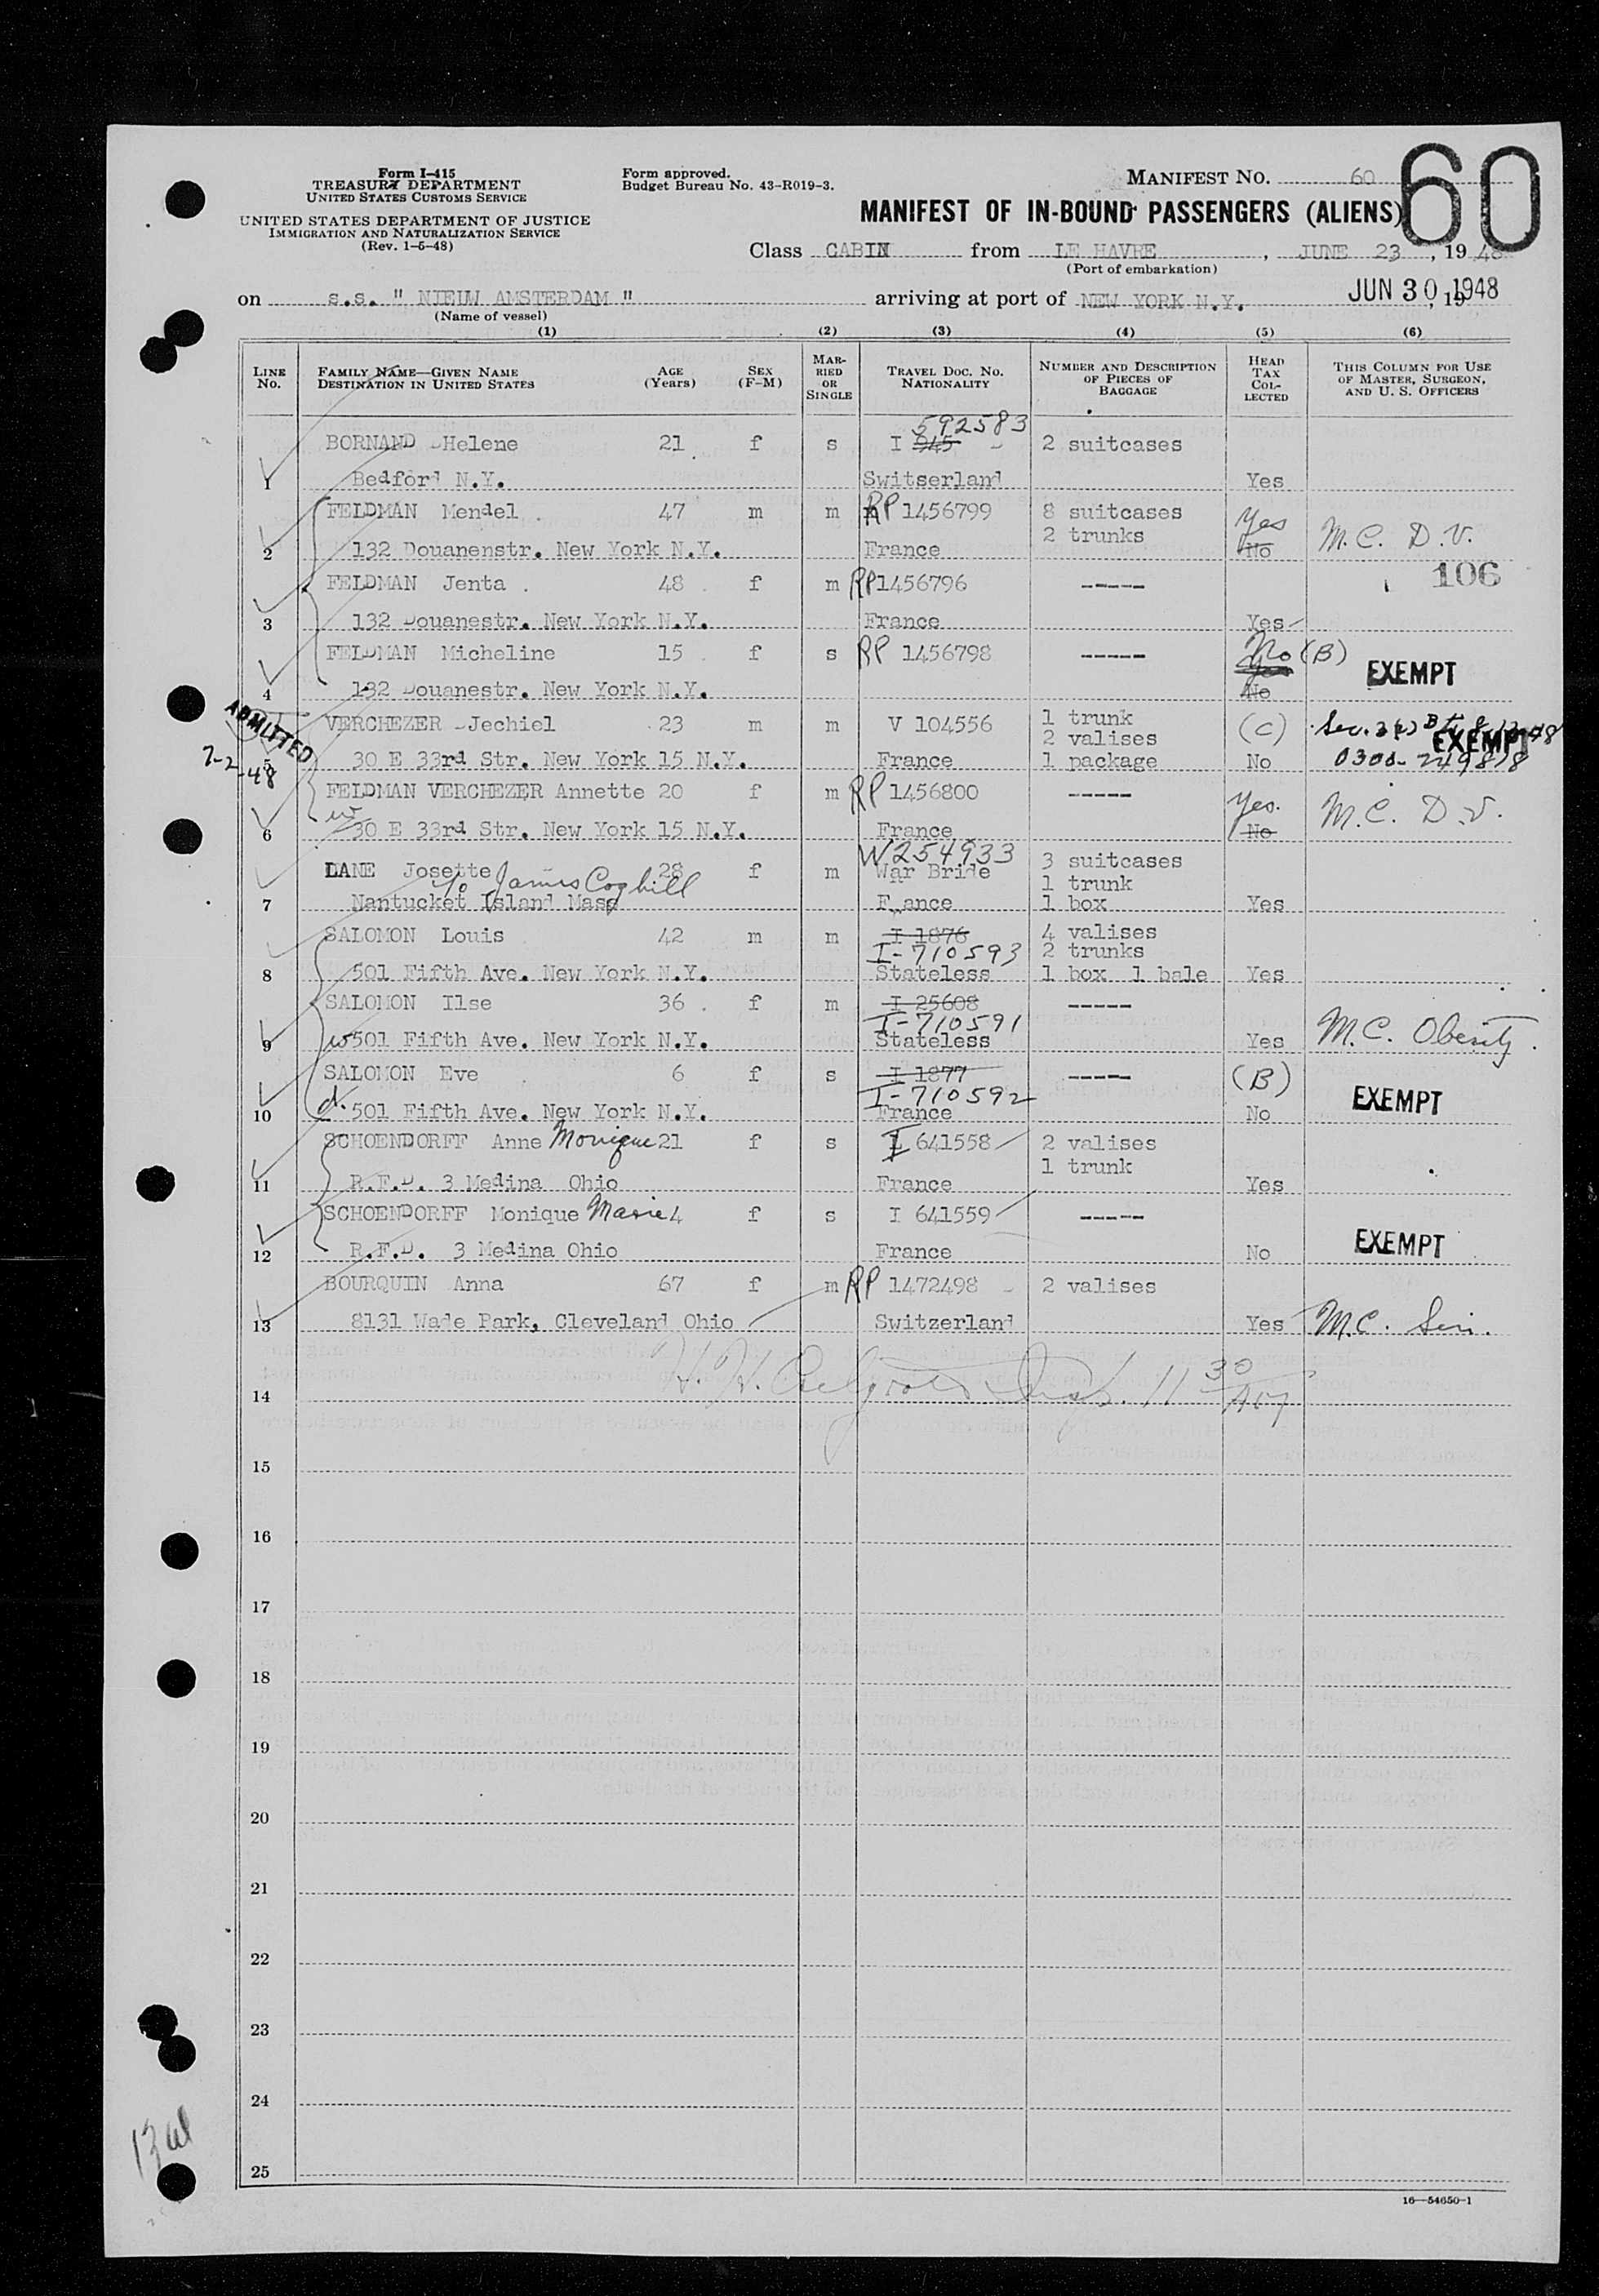 Form I-415
TREASURY DEPARTMENT
UNITED STATES CUSTOMS SERVICE
UNITED STATES DEPARTMENT OF JUSTICE
IMMIGRATION AND NATURALIZATION SERVICE
(Rev. 1-5-48)
Form approved.
Budget Bureau No. 43-R019-3.
MANIFEST NO. 60
60
MANIFEST OF IN-BOUND PASSENGERS (ALIENS)
Class CABIN from LE HAVRE, JUNE 23, 1948
(Port of embarkation)
on s.s. " NIEUW AMSTERDAM " arriving at port of NEW YORK N.Y. JUN 30 1948, 19
(Name of vessel)
(1) (2) (3) (4) (5) (6)
LINE No. FAMILY NAME—GIVEN NAME DESTINATION IN UNITED STATES AGE (Years) SEX (F-M) MARRIED OR SINGLE TRAVEL DOC. NO. NATIONALITY NUMBER AND DESCRIPTION OF PIECES OF BAGGAGE HEAD TAX COLLECTED THIS COLUMN FOR USE OF MASTER, SURGEON, AND U. S. OFFICERS
592583
BORNAND Helene 21 f s I 945 2 suitcases
1 Bedford N.Y. Switserland Yes
FELDMAN Mendel 47 m m RP 1456799 8 suitcases Yes M.C. D.V.
2 trunks
2 132 Douanenstr. New York N.Y. France No
106
FELDMAN Jenta 48 f m RP 1456796 -----
3 132 Douanestr. New York N.Y. France Yes
FELDMAN Micheline 15 f s RP 1456798 ----- No (B) EXEMPT
4 132 Douanestr. New York N.Y. No
ADMITTED
7-2-48
VERCHEZER Jechiel 23 m m V 104556 1 trunk (C)
2 valises EXEMPT
5 30 E 33rd Str. New York 15 N.Y. France 1 package No 0300-
FELDMAN VERCHEZER Annette 20 f m RP 1456800 ----- Yes. M.C. D.V.
w
6 30 E 33rd Str. New York 15 N.Y. France No
W254933
LANE Josette 28 f m War Bride 3 suitcases
James Coghill 1 trunk
7 Nantucket Island Mass France 1 box Yes
SALOMON Louis 42 m m I 1876 4 valises
I-710593 2 trunks
8 501 Fifth Ave. New York N.Y. Stateless 1 box 1 bale Yes
SALOMON Ilse 36 f m I 25608 -----
I-710591 M.C. Obesity.
9 w 501 Fifth Ave. New York N.Y. Stateless Yes
SALOMON Eve 6 f s I 1877 ----- (B)
I-710592 EXEMPT
10 d. 501 Fifth Ave. New York N.Y. France No
SCHOENDORFF Anne Monique 21 f s I 641558 2 valises
1 trunk
11 R.F.D. 3 Medina Ohio France Yes
SCHOENDORFF Monique Marie 4 f s I 641559 -----
12 R.F.D. 3 Medina Ohio France No EXEMPT
BOURQUIN Anna 67 f m RP 1472498 2 valises
13 8131 Wade Park, Cleveland Ohio Switzerland Yes M.C. Sen.
14
15
16
17
18
19
20
21
22
23
24
25
16—54650-1